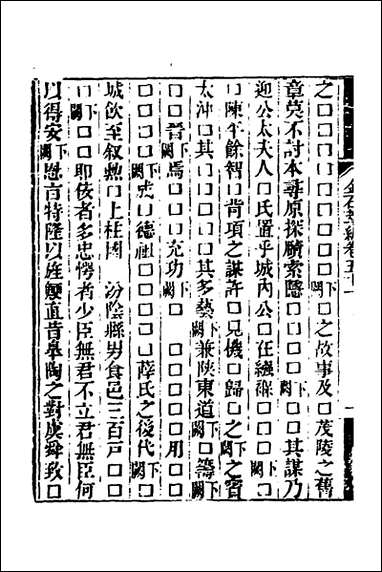 之□□□□□□□下闕□之故事及□茂陵之舊
章莫不討本尋原探賾索隱□□□下闕□□其謀乃
迎公太夫人□氏置乎城內公□在縲□□□□下闕
□陳平餘智□背項之謀許□見機□歸□之下闕之賓
太沖□其□□□□其多藝下闕兼陝東道下闕□籌下闕
□□者下闕焉□□□允功下闕□ □□□□□用□□
□□□□下闕虎□德祖□□□□□薛氏之後代下闕□
城飲至叙勲□上柱國 汾陰縣男食邑三百戸□□
□□下闕□□耶佞者多忠愕者少臣無君不立君無臣何
以得安下闕恩言特隆以旌鯁直昔皋陶之對虞舜致□
金石萃編卷五十一